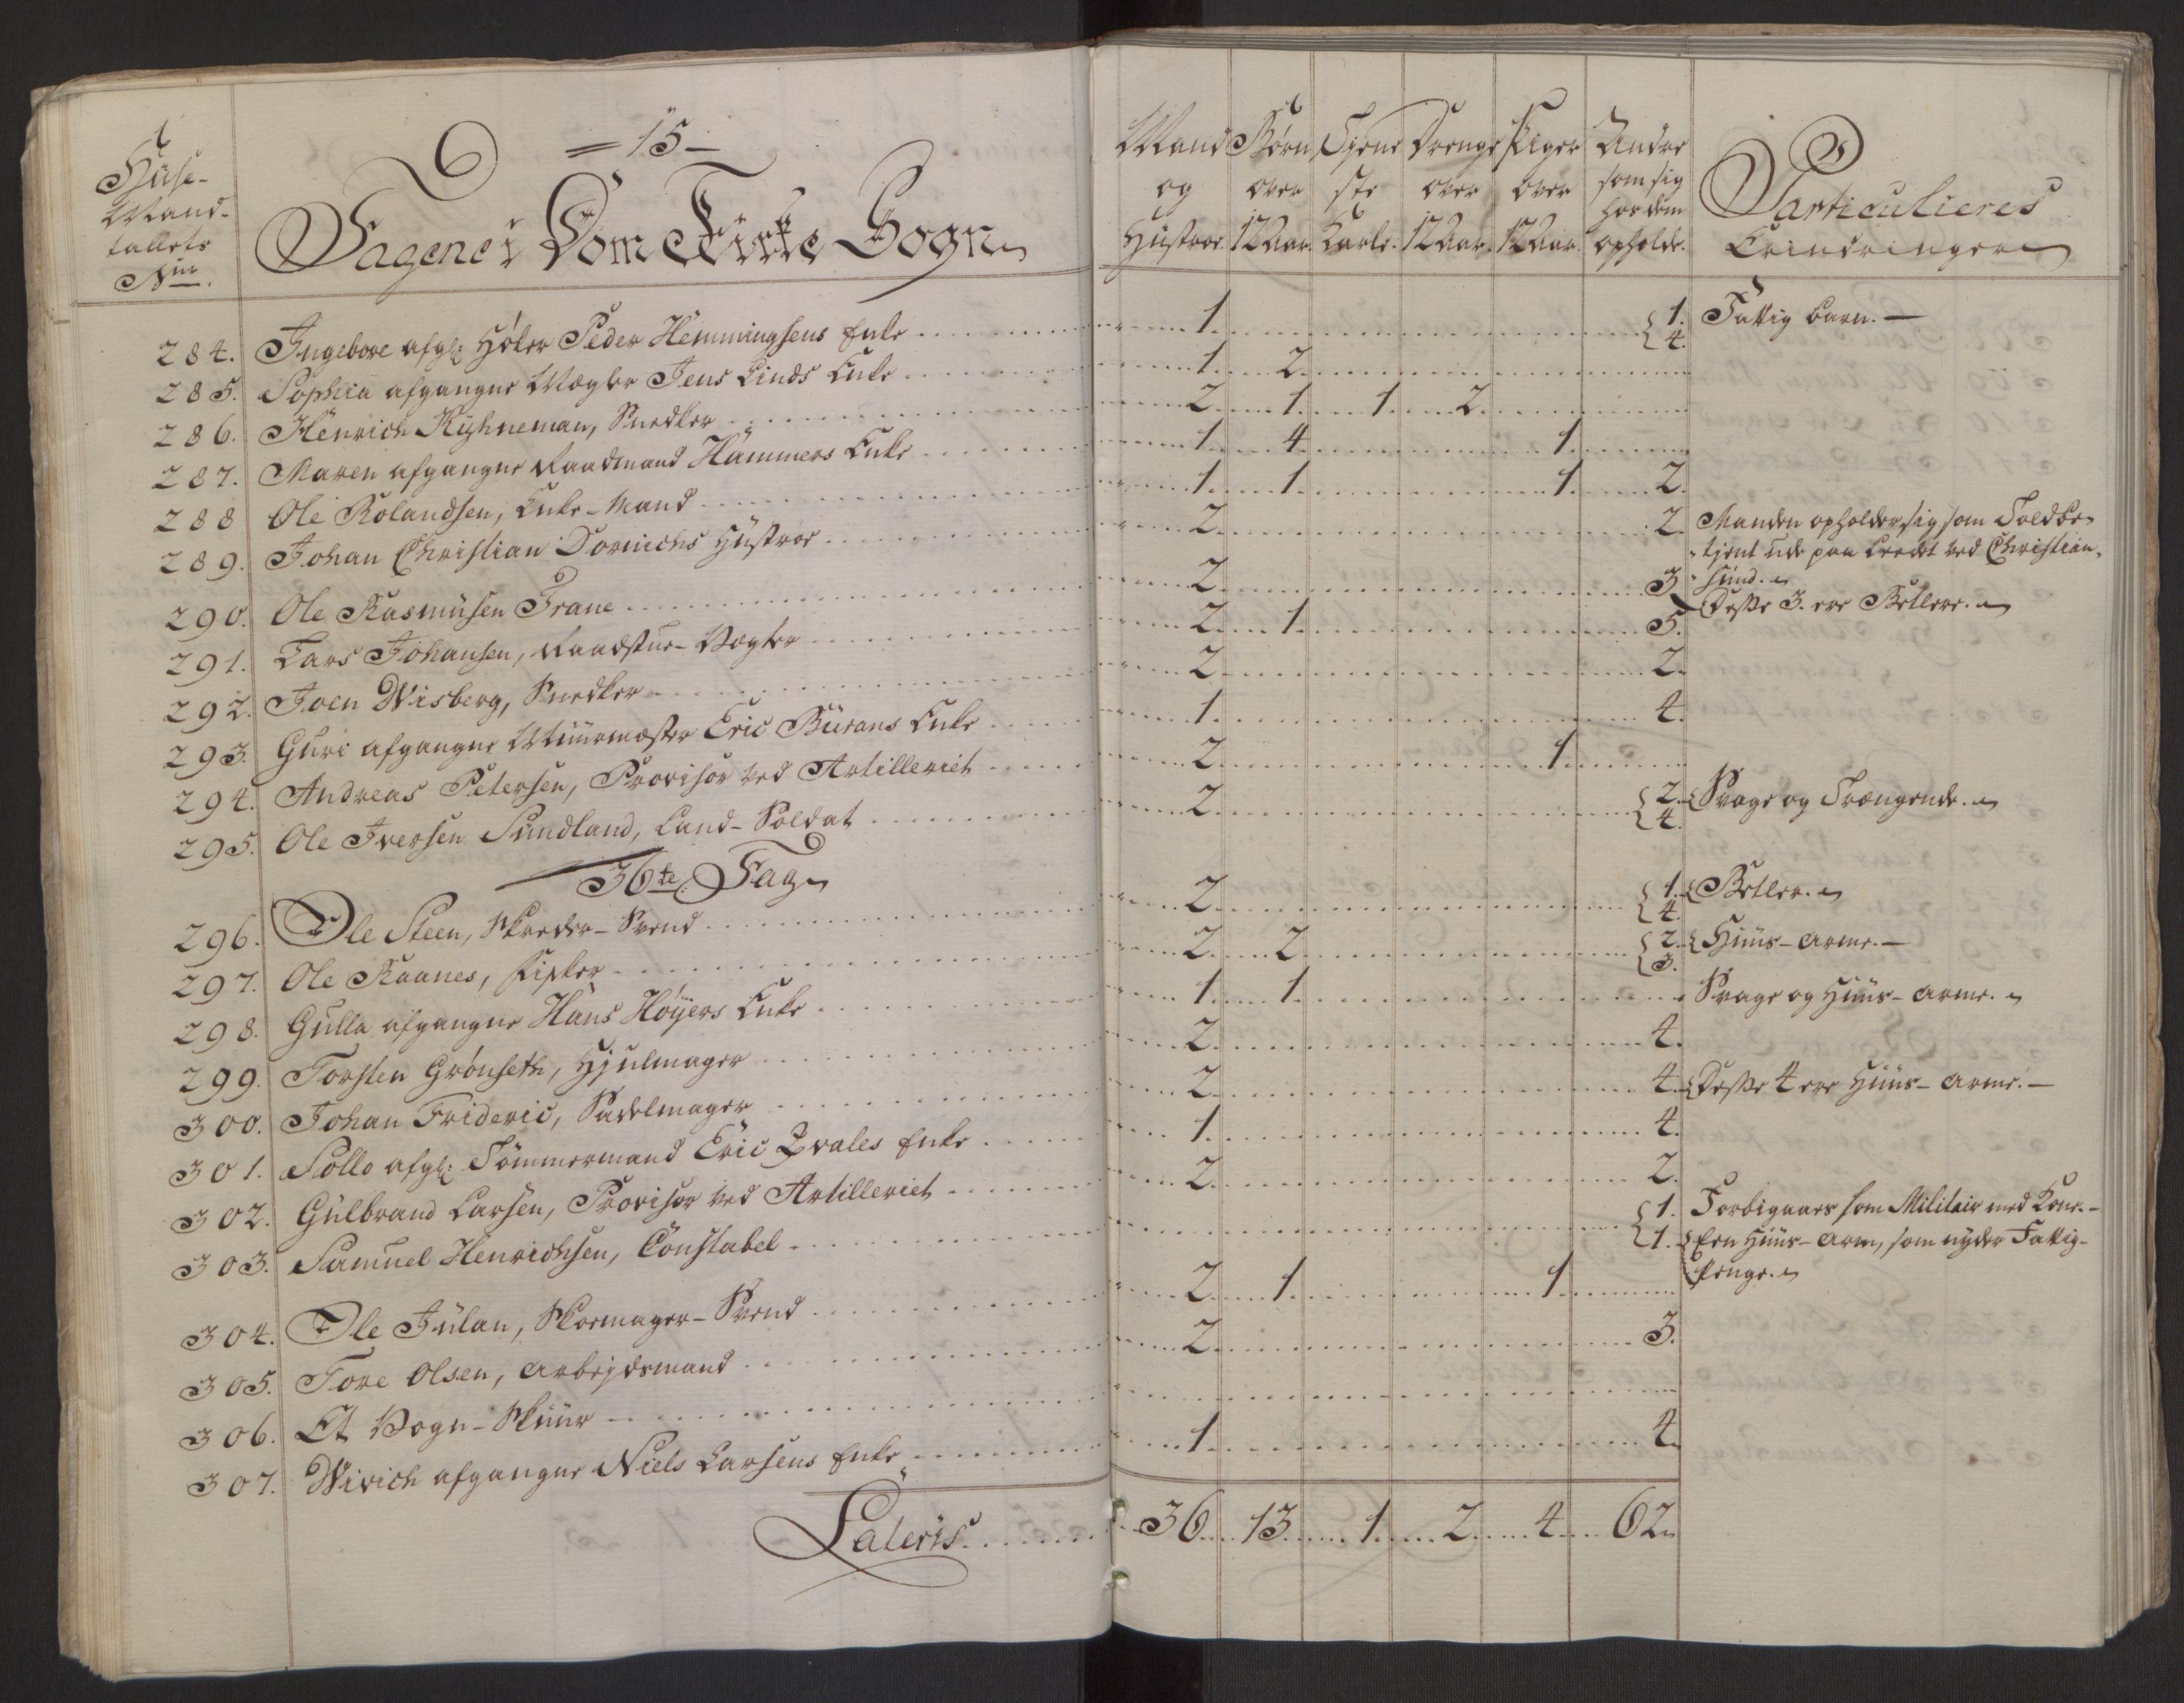 = 15 -
Huse-
Mand-
tallets
Nur.
Tagene i Dom Kirke Sogn
Mand og Hustroe.
Børn over 12 Aar.
Tjene ste Karle.
Drenge over 12 Aar.
Piger over 12 Aar.
Andre som sig hos dem opholde.
Particulieres Erindringer
284. Ingebore afgl: Høker Peder Hemmingsens Enke 1 {1. 4. Fattig barn.
285. Sophia afgangne Mægler Jens Linds Enke 1 2
286. Henrich Kyhneman, Snedker 2 1 1 2
287. Maren afgangne Raadmand Hammers Enke 1 4 1
288 Ole Rolandsen, Enke-Mand 1 1 1 2.
289. Johan Christian Dornichs Hustroe 2 2. Manden opholder sig som Toldbe-
tjent ude paa Leedet ved Christian-
sund.
290. Ole Rasmusen Trane 2 3 Disse 3. ere Betlere.
291. Lars Johansen, Raadstue-Vogter 2 1 5.
292. Joen Wisberg, Snedker 2 2.
293. Guri afgangne Muurmester Eric Burans Enke 1 4.
294. Andreas Petersen, Provisor ved Artilleriet 2 1
295. Ole Iversen Sundland, Land-Soldat 2 {2. 4. Svage og Trængende.
36te Tag
296. Ole Steen, Skreder-Svend 2 {1. 4. Betler.
297. Ole Raanes, Fisker 2 2 {2. 3. Huus-arme.
298. Gulla afgangne Hans Høyers Enke 1 1 Svage og Huus-arme.
299. Torsten Grønseth, Hjulmager 2 4.
300. Johan Frideric, Sadelmager 2 4. Disse 4 ere Huus-arme.
301. Sollo afgl: Tömmermand Eric Qvales Enke 1 4.
302. Gulbrand Larsen, Provisor ved Artilleriet 2 2.
303. Samuel Henrichsen, Constabel {1. 1. Forbigaaes som Militair med Kone.
Een Huus-arm, som nyder Fattig-
Penge.
304. Ole Julan, Skoemager-Svend 2 1 1
305. Tore Olsen, Arbejdsmand 2 3.
306. Et Vogn-Skuur
307. Wirich afgangne Niels Larsens Enke 1 4.
Lateris 36 13 1 2 4 62